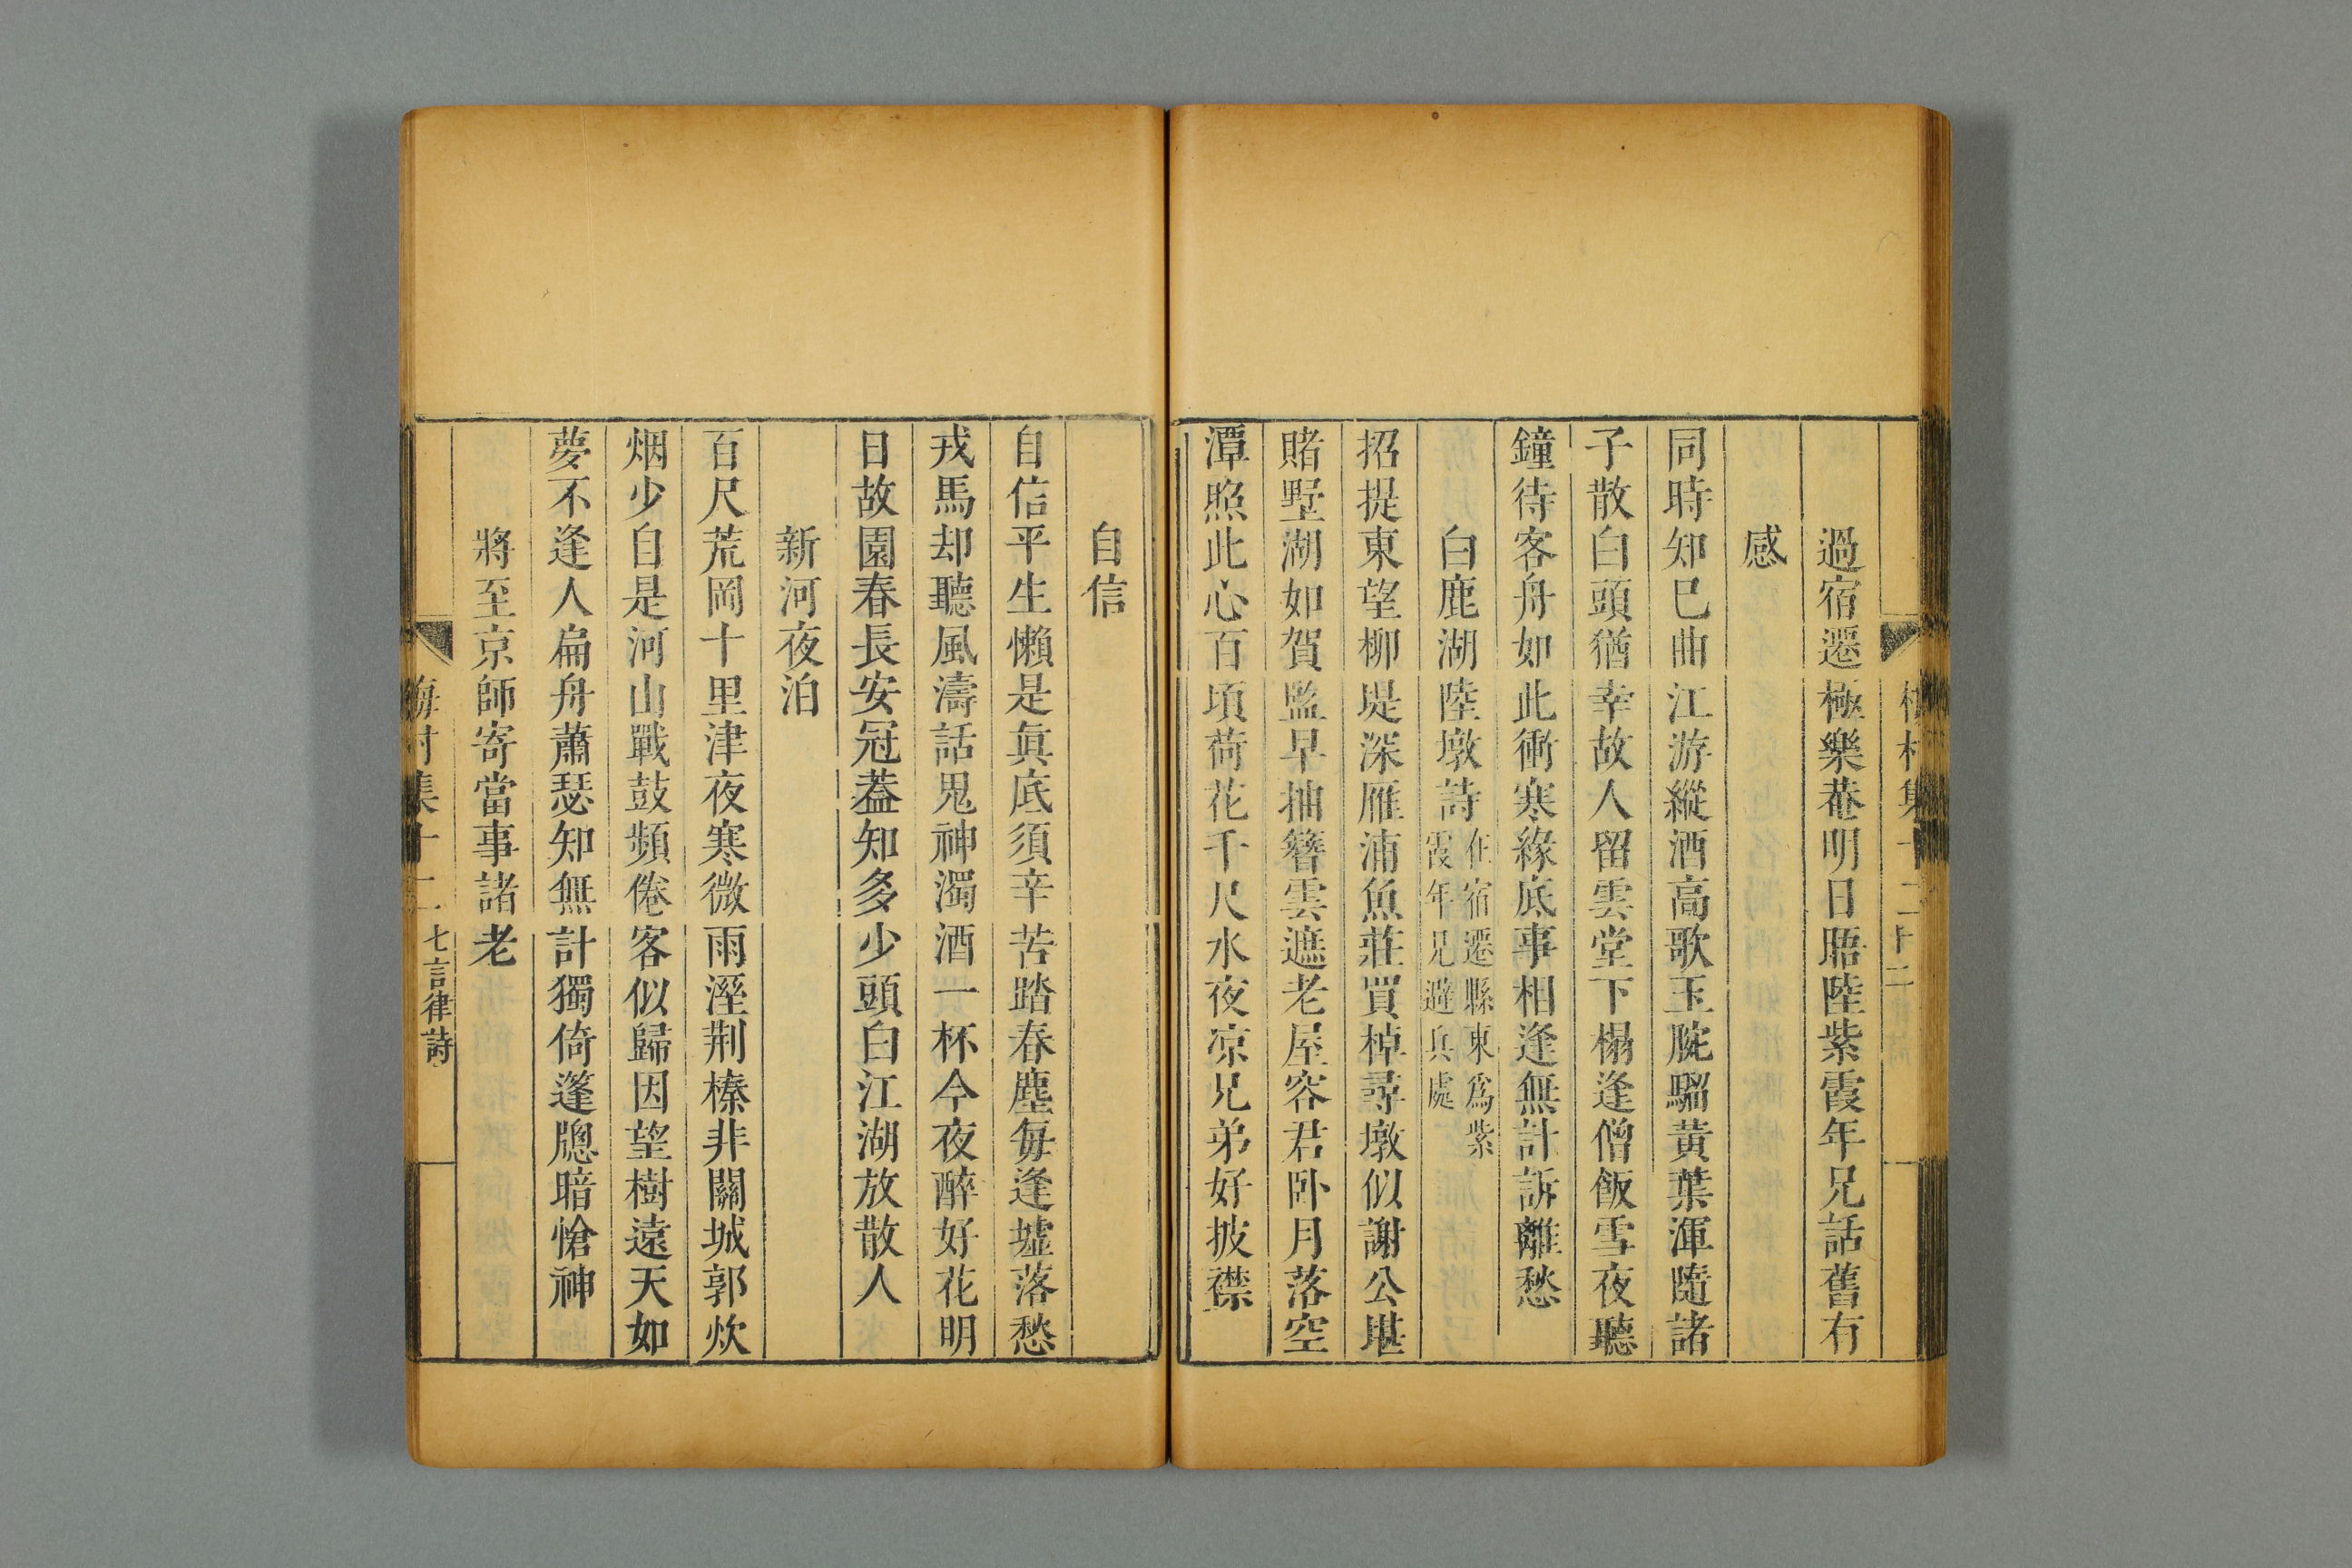 過宿遷極樂菴明日晤陸紫霞年兄話舊有
感
同時知已曲江游縱酒高歌玉腕騮黃葉渾隨諸
子散白頭猶幸故人留雲堂下榻逢僧飯雪夜聽
鐘待客舟如此衝寒緣底事相逢無計訴離愁
白鹿湖陸墩詩在宿遷縣東爲紫
霞年兄避兵處
招提東望柳堤深雁浦魚莊買棹尋墩似謝公堪
賭墅湖如賀監早抽簪雲遮老屋容君卧月落空
潭照此心百頃荷花千尺水夜凉兄弟好披襟
自信
自信平生懶是眞底須辛苦踏春塵每逢墟落愁
戎馬却聽風濤話鬼神濁酒一杯今夜醉好花明
日故園春長安冠葢知多少頭白江湖放散人
新河夜泊
百尺荒岡十里津夜寒微雨溼荆榛非關城郭炊
烟少自是河山戰鼓頻倦客似歸因望樹遠天如
夢不逢人扁舟蕭瑟知無計獨倚蓬牕暗愴神
將至京師寄當事諸老
梅村集十二 七言律詩